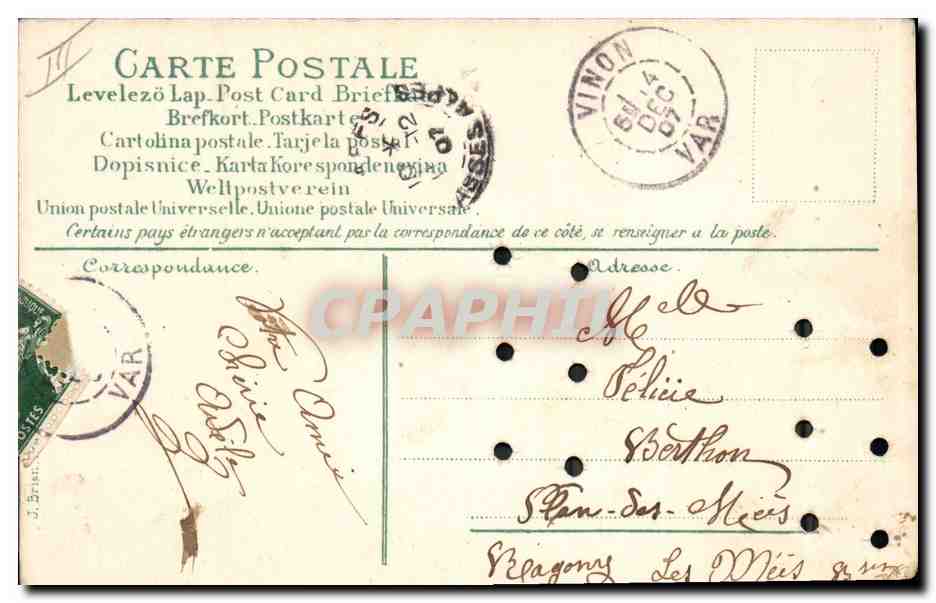 III
CARTE POSTALE
Levelezö Lap._Post Card_Briefkaart
Brefkort._Postkarte
Cartolina postale._Tarjela postal
Dopisnice._Karta Korespondencyjna
Weltpostverein
Union postale Universelle._Unione postale Universale.
Certains pays étrangers n'acceptant pas la correspondance de ce côté, se renseigner a la poste.
VINON
4
DEC
07
VAR
BASSES ALPES
07
Correspondance.
Adresse.
CPAPHIL
Votre Amie
Chérie
Adèle
VAR
POSTES
J. Brian
Melle
Félicie
Berthon
Plan-des-Mées
Les Mées